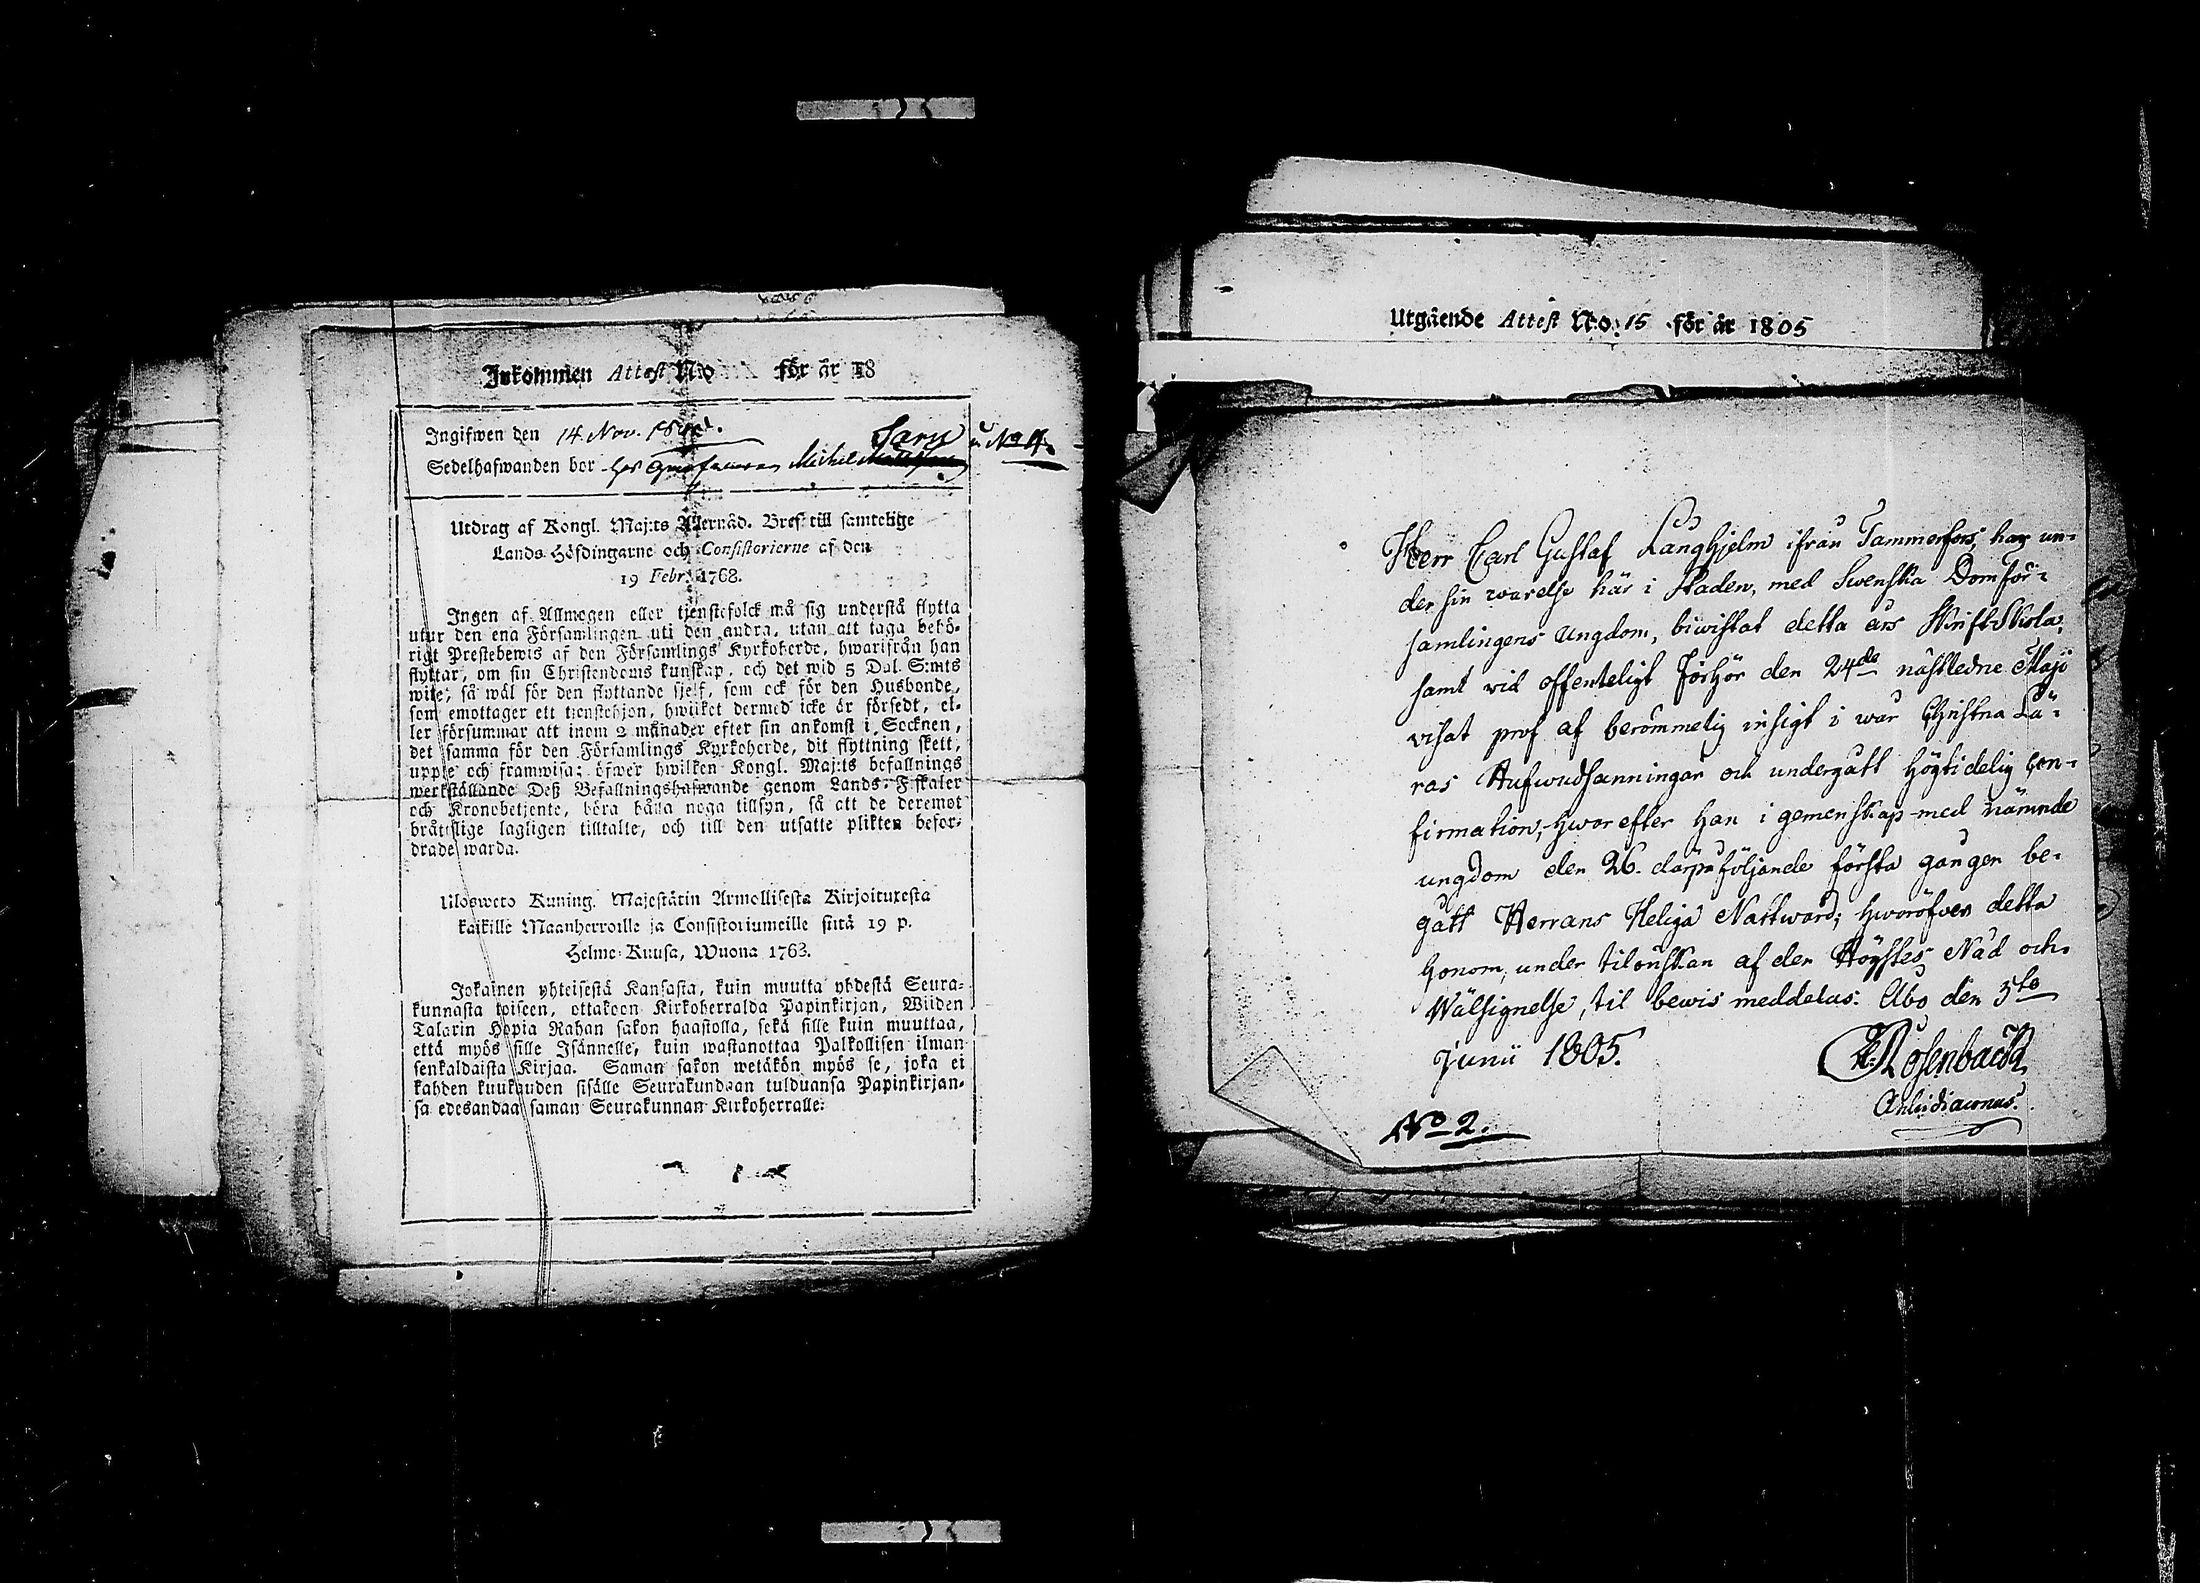 Inkommen Attest No för år 18
Ingifwen den 14 Nov.
Sedelhafwanden bor hos Michel
Sary u No 4.
Utdrag af Kongl. Maj:ts Allernåd. Bref till samtelige
Lands-Höfdingarne och Consistorierne af den
19 Febr. 1768.
Ingen af Allmogen eller tjenstefolck må sig understå flytta
utur den ena Församlingen uti den andra, utan att taga behö-
rigt Prestebewis af den Församlings Kyrkoherde, hwarifrån han
flyttar, om sin Christendoms kunskap, och det wid 5 Dal. S:mts
wite, så wäl för den flyttande sjelf, som ock för den Husbonde,
som emottager ett tjenstehjon, hwilket dermed icke är försedt, el-
ler försummar att inom 2 månader efter sin ankomst i Socknen,
det samma för den Församlings Kyrkoherde, dit flyttning skett,
uppte och framwisa; öfwer hwilken Kongl. Maj:ts befallnings
werkställande Deß Befallningshafwande genom Lands-Fiskaler
och Kronobetjente, böra hålla noga tillsyn, så att de deremot
bråttslige lagligen tilltalte, och till den utsatte plikten befor-
drade warda.
Ulosweto Kuning. Majestätin Armollisesta Kirjoituxesta
kaikille Maanherroille ja Consistoriumeille siitä 19 p.
Helme-Kuusa, Wuona 1763.
Jokainen yhteisestä Kansasta, kuin muutta yhdestä Seura-
kunnasta toiseen, ottakoon Kirkoherralda Papinkirjan, Wiiden
Talarin Hopia Rahan sakon haastolla, sekä sille kuin muuttaa,
että myös sille Isännelle, kuin wastanottaa Palkollisen ilman
senkaldaista Kirjaa. Saman sakon wetäkön myös se, joka ei
kahden kuukauden sisälle Seurakundaan tulduansa Papinkirjan-
sa edesandaa saman Seurakunnan Kirkoherralle:
Utgående Attest No. 15 för år 1805
Herr Carl Gustaf Langhjelm ifrån Tammerfors, har un-
der sin warelse här i Staden, med Swenska Domför-
samlingens Ungdom, biwistat detta års Skriftskola,
samt vid offenteligt Förhör den 24de nästledne Maji
visat prof af berömmelig insigt i wår Christna Lä-
ras Hufwudsanningar och undergått högtidelig Con-
firmation, hwarefter han i gemenskap med nämnde
ungdom den 26. därpåföljande första gången be-
gått Herrans Heliga Nattward; hworöfver detta
honom, under tilönskan af den Högstes Nåd och
Wälsignelse, til bewis meddelas. Åbo den 5te
Junii 1805.
Rosenback
Archidiaconus.
No 2.